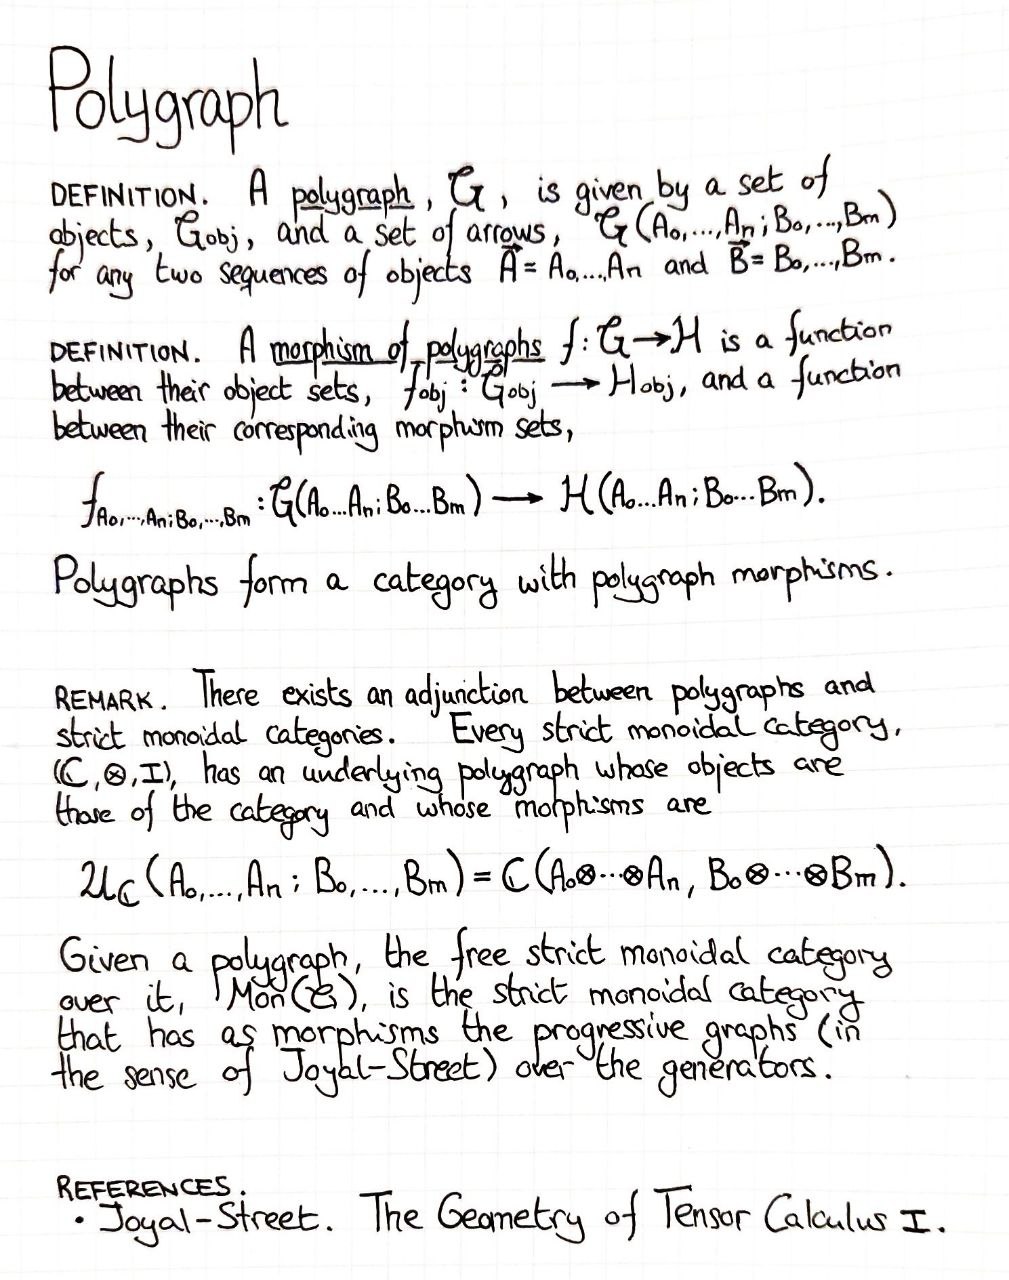 Polygraph
DEFINITION. A polygraph, G, is given by a set of
objects, Gobj, and a set of arrows, G(A₀,...,Aₙ;B₀,...,Bₘ)
for any two sequences of objects A⃗ = A₀,...,Aₙ and B⃗ = B₀,...,Bₘ.
DEFINITION. A morphism of polygraphs f: G→H is a function
between their object sets, fobj : Gobj → Hobj, and a function
between their corresponding morphism sets,
f A₀,...,Aₙ;B₀,...,Bₘ : G(A₀...Aₙ;B₀...Bₘ) → H(A₀...Aₙ;B₀...Bₘ).
Polygraphs form a category with polygraph morphisms.
REMARK. There exists an adjunction between polygraphs and
strict monoidal categories. Every strict monoidal category,
(ℂ,⊗,I), has an underlying polygraph whose objects are
those of the category and whose morphisms are
𝒰ℂ(A₀,...,Aₙ; B₀,...,Bₘ) = ℂ(A₀⊗...⊗Aₙ, B₀⊗...⊗Bₘ).
Given a polygraph, the free strict monoidal category
over it, Mon(G), is the strict monoidal category
that has as morphisms the progressive graphs (in
the sense of Joyal-Street) over the generators.
REFERENCES.
• Joyal-Street. The Geometry of Tensor Calculus I.